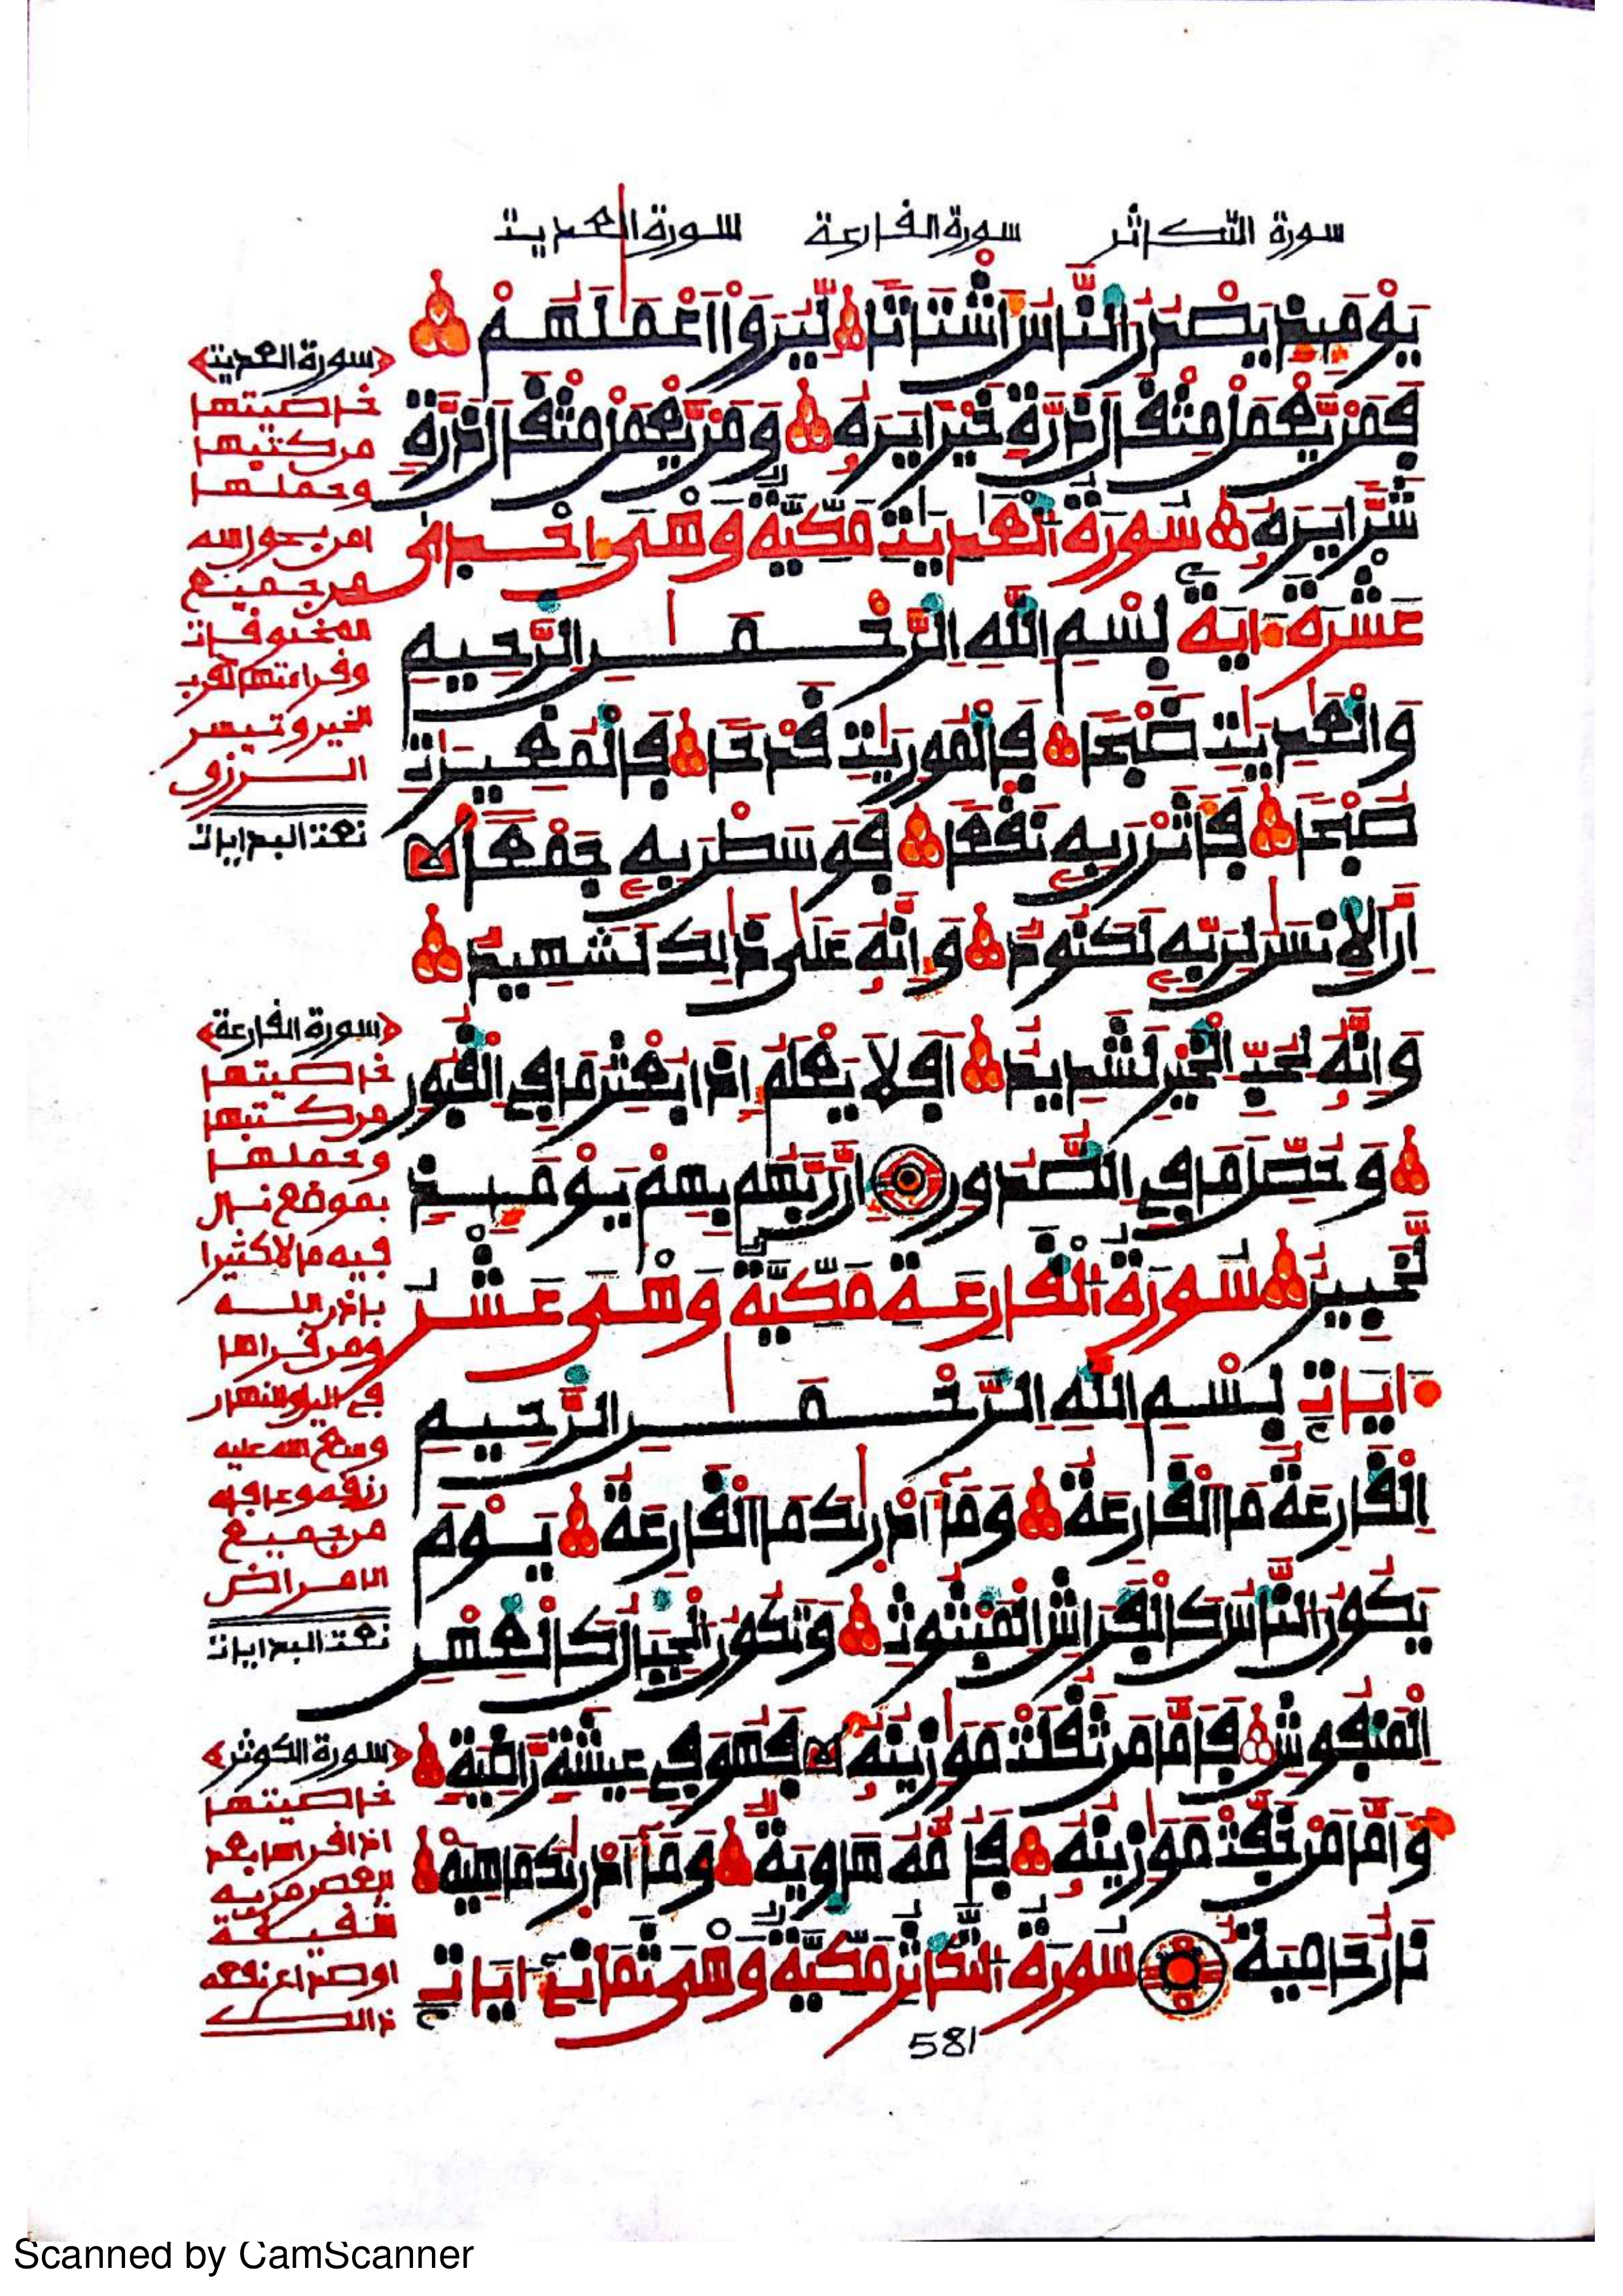 سورة التكاثر سورة الفارعة سورة العديت
يَوْمَئِذٍ يَصْدُرُ النَّاسُ أَشْتَاتًا لِّيُرَوْا اَعْمَلَهُمْ
فَمَنْ يَّعْمَلْ مِثْقَالَ ذَرَّةٍ خَيْرًا يَرَهُ وَمَنْ يَّعْمَلْ مِثْقَالَ ذَرَّةٍ
شَرًّا يَرَهُ سُورَةُ الْعَدِيَتِ مَكِّيَّةٌ وَهْىَ إِحْدَى
عَشْرَةَ ايَةً بِسْمِ اللَّهِ الرَّحْمَنِ الرَّحِيمِ
وَالْعَدِيَتِ ضَبْحًا فَالْمُورِيَتِ قَدْحًا فَالْمُغِيرَتِ
صُبْحًا فَأَثَرْنَ بِهِ نَقْعًا فَوَسَطْنَ بِهِ جَمْعًا
اِنَّ الاِنسَنَ لِرَبِّهِ لَكَنُودٌ وَإِنَّهُ عَلَى ذَلِكَ لَشَهِيدٌ
وَإِنَّهُ لِحُبِّ الْخَيْرِ لَشَدِيدٌ اَفَلَا يَعْلَمُ إِذَا بُعْثِرَ مَا فِي الْقُبُورِ
وَحُصِّلَ مَا فِي الصُّدُورِ اِنَّ رَبَّهُم بِهِمْ يَوْمَئِذٍ
لَّخَبِيرٌ سُورَةُ الْقَارِعَةِ مَكِّيَّةٌ وَهْىَ عَشْرُ
ايَاتٍ بِسْمِ اللَّهِ الرَّحْمَنِ الرَّحِيمِ
اِلْقَارِعَةُ مَا الْقَارِعَةُ وَمَا أَدْرَيكَ مَا الْقَارِعَةُ يَوْمَ
يَكُونُ النَّاسُ كَالْفَرَاشِ الْمَبْثُوثِ وَتَكُونُ الْجِبَالُ كَالْعِهْنِ
اِلْمَنفُوشِ فَأَمَّا مَن ثَقُلَتْ مَوَزِينُهُ فَهُوَ فِي عِيشَةٍ رَّاضِيَةٍ
وَأَمَّا مَنْ خَفَّتْ مَوَزِينُهُ فَأُمُّهُ هَاوِيَةٌ وَمَا أَدْرَيكَ مَا هِيَهْ
نَارٌ حَامِيَةٌ سُورَةُ التَّكَاثُرِ مَكِّيَّةٌ وَهْىَ ثَمَانِي ايَاتٍ
581
سورة العديت
خاصيتها
من كتبها
وحملها
امن بحول الله
من جميع
المخوفات
وفراءتها لقرب
الخير وتيسر
الرزق
نعت البدايات
سورة الفارعة
خاصيتها
من كتبها
وحملها
بموضع نال
فيه مالا كثيرا
باذن الله
ومن قراها
في اليل والنهار
وسع الله عليه
رزقه وعافيه
من جميع
الامراض
نعت البدايات
سورة الكوثر
خاصيتها
اذا افراها بعد
العصر من به
شفيفة
او صداع نفعه
ذالك
Scanned by CamScanner